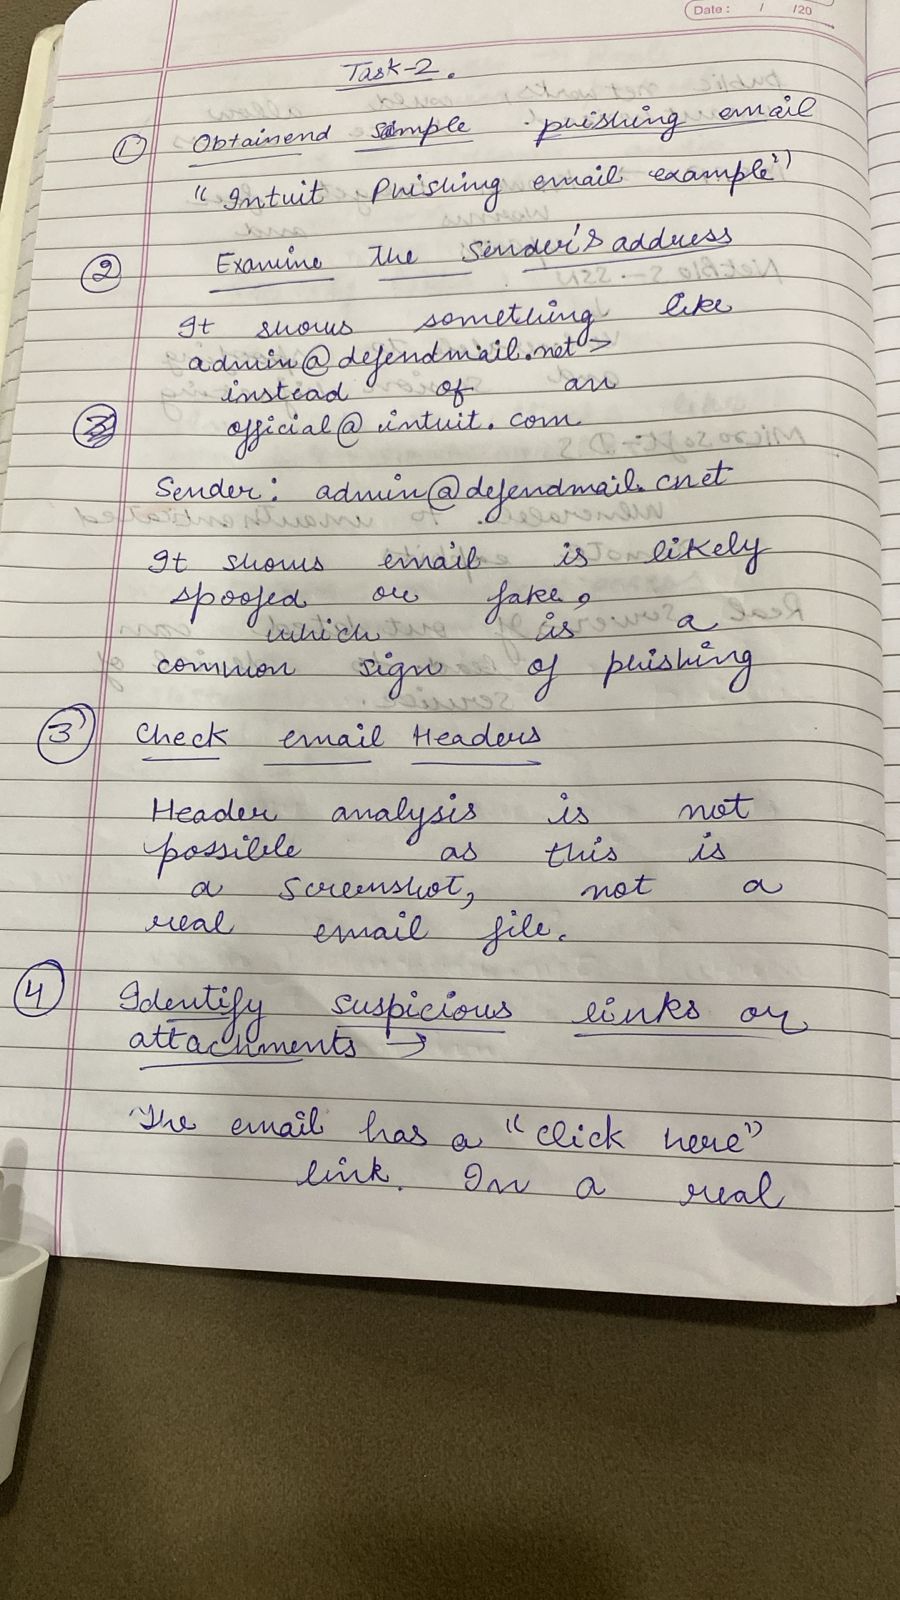 Date: / /20
Task-2.
① Obtainend sample phishing email
"Intuit Phishing email example")
② Examine The Sender's address
It shows something like
admin@defendmail.net>
instead of an
official@intuit.com
Sender: admin@defendmail.cnet
It shows email is likely
spoofed or fake,
which is a
common sign of phishing
③ Check email Headers
Header analysis is not
possible as this is
a screenshot, not a
real email file.
④ Identify suspicious links or
attachments →
The email has a "click here"
link. In a real